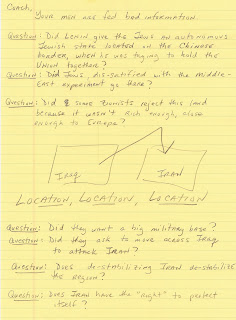 Coach,
Your man was fed bad information
Question: Did Lenin give the Jews an autonomous
Jewish state located on the Chinese
border, when he was trying to hold the
Union together?
Question: Did Jews, dis-satified with the middle-
east experiment go there?
Question: Did some Zionists reject this land
because it wasn't rich enough, close
enough to Europe?
IRAQ IRAN
LOCATION, LOCATION, LOCATION
Question: Did they want a big military base?
Question: Did they ask to move across Iraq
to attack Iran?
Question: Does de-stabilizing Iran de-stabilize
the region?
Question: Does Iran have the "right" to protect
itself?